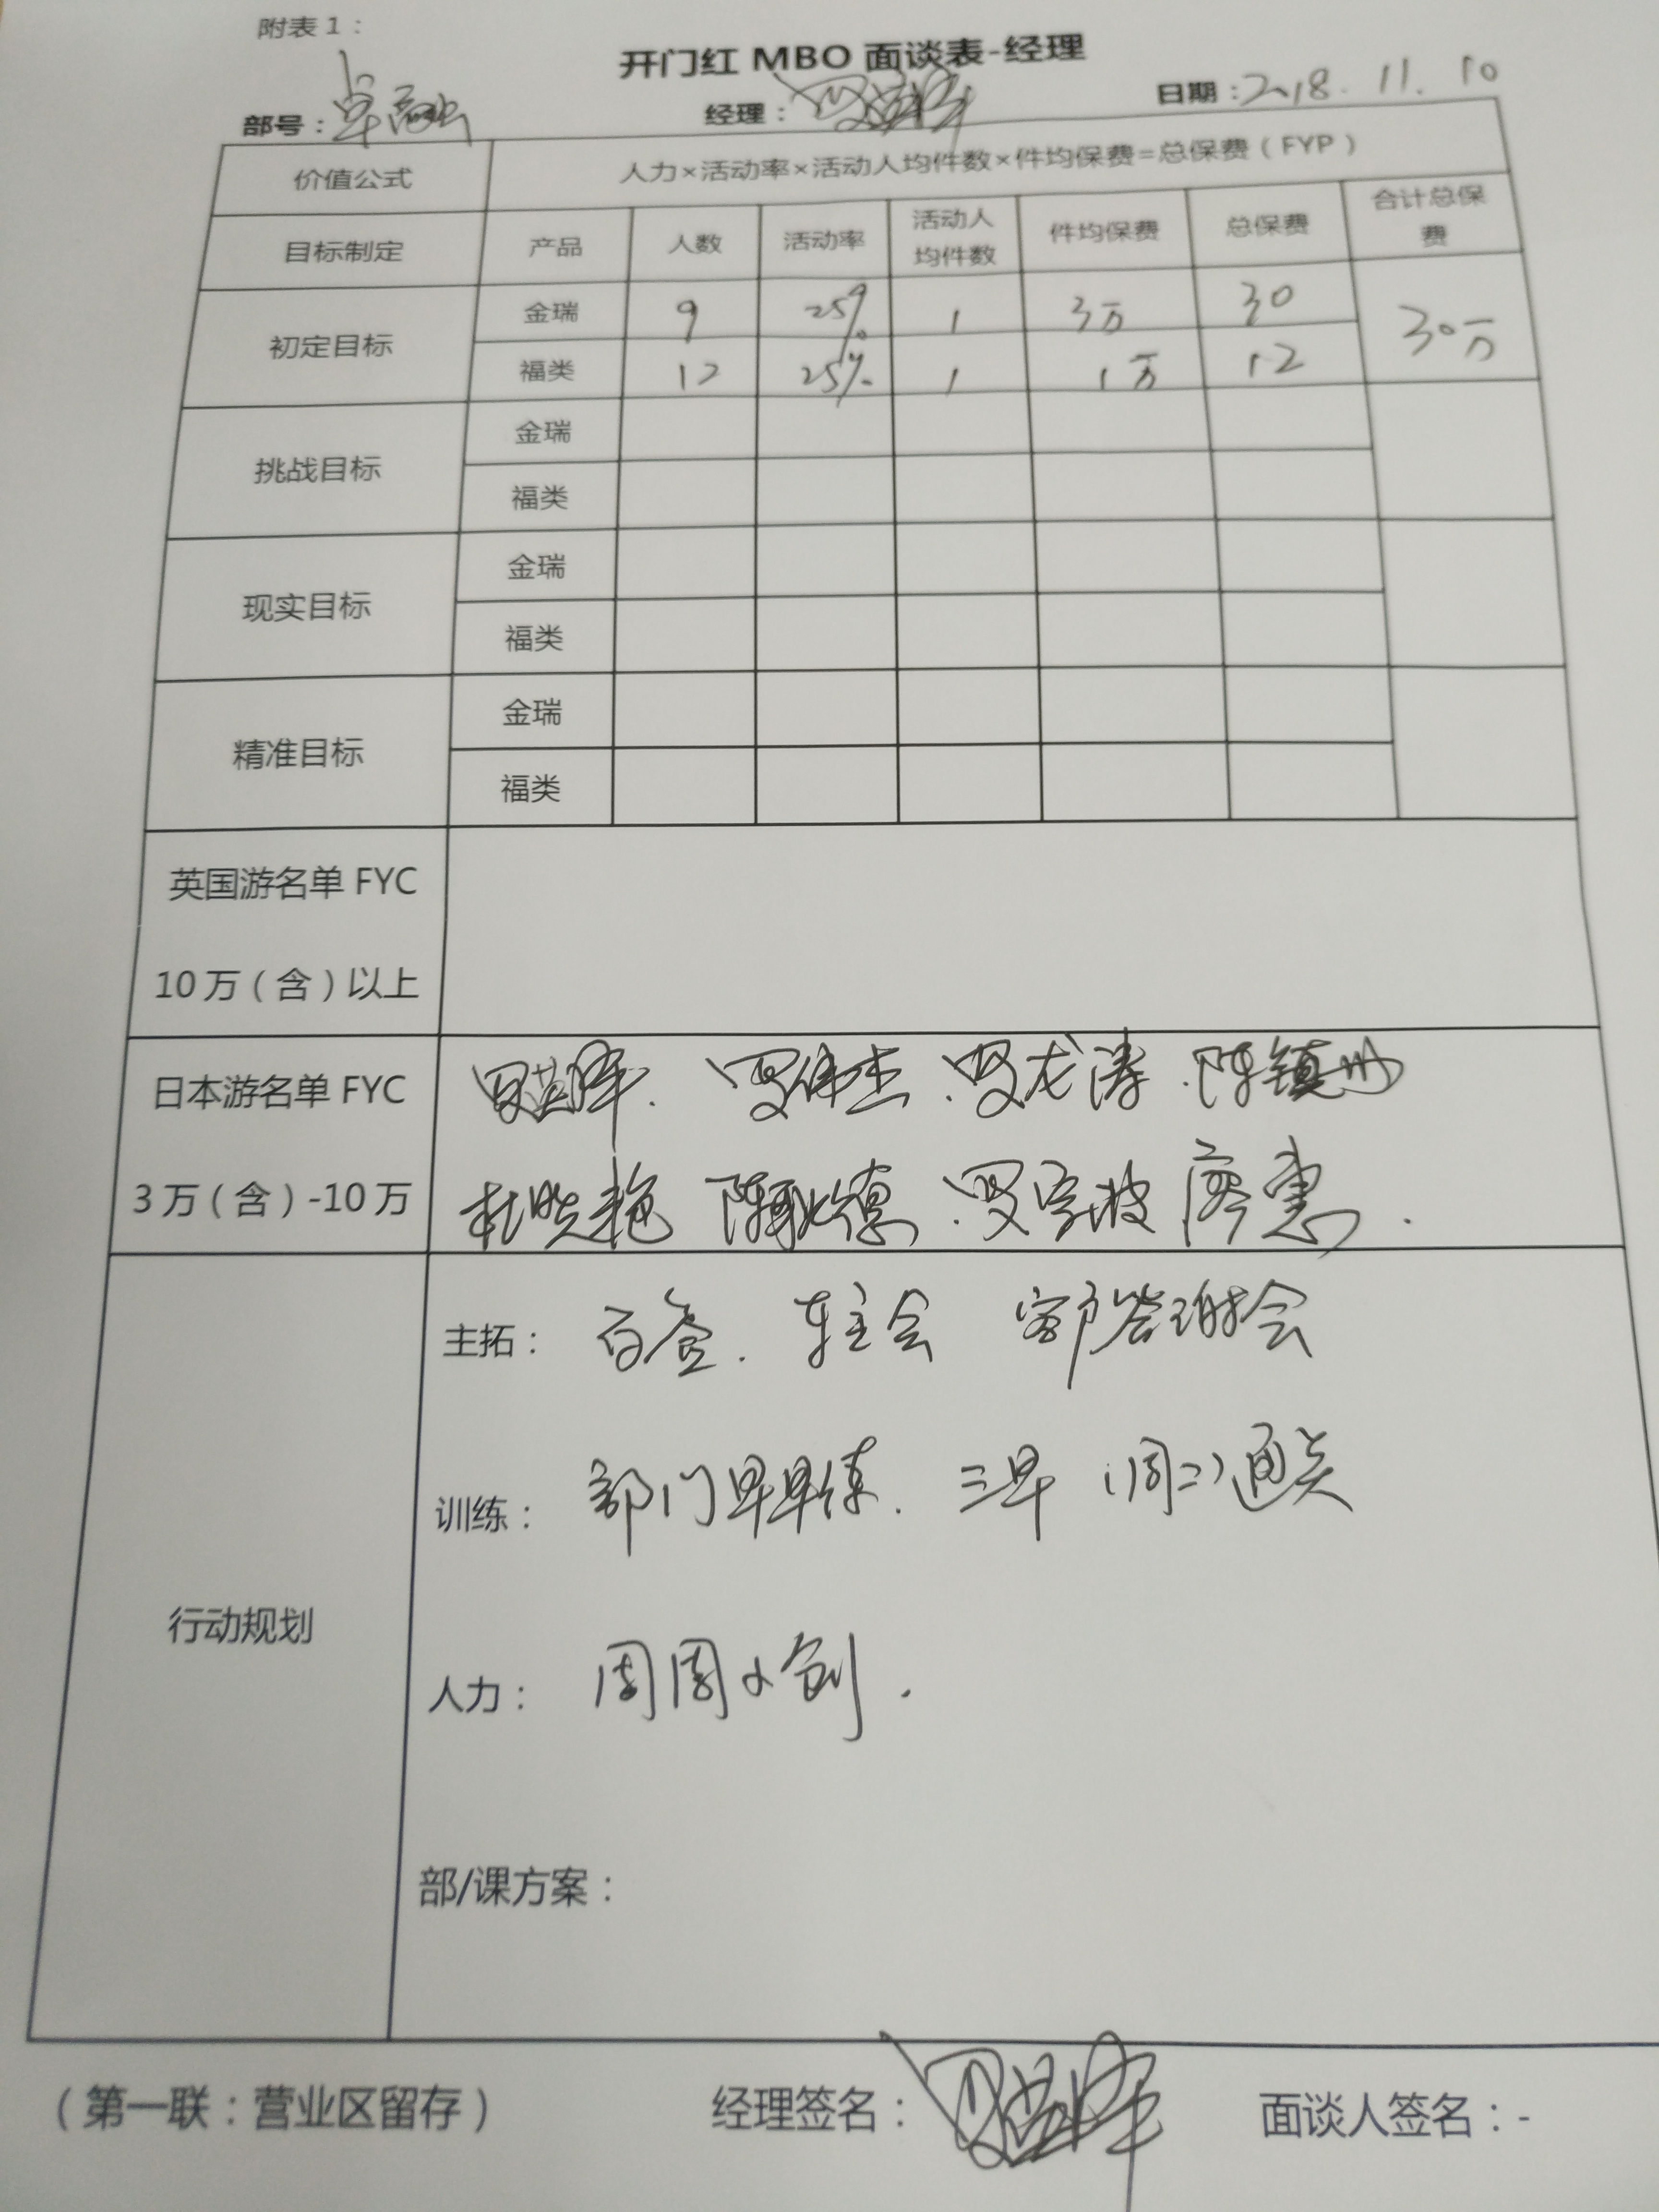 附表1：
开门红 MBO 面谈表-经理
部号： 经理： 日期：2018.11.10
价值公式 人力×活动率×活动人均件数×件均保费=总保费（FYP）
目标制定 产品 人数 活动率 活动人均件数 件均保费 总保费 合计总保费
初定目标 金瑞 9 25% 1 3万 30 30万
福类 12 25% 1 1万 12
挑战目标 金瑞
福类
现实目标 金瑞
福类
精准目标 金瑞
福类
英国游名单 FYC
10万（含）以上
日本游名单 FYC 罗伟杰、罗龙涛、陈镇
3万（含）-10万 杜晓艳 陈 德、罗 波 廖惠.
行动规划
主拓： 车主会 客户答谢会
训练：部门早早练. 三早（周二）通关
人力：周周小创.
部/课方案：
（第一联：营业区留存） 经理签名： 面谈人签名：-